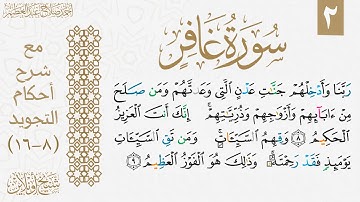 ٢
سُورَةُ غَافِرٍ
مع
شرح
أحكام
التجويد
(٨-١٦)
رَبَّنَا وَأَدْخِلْهُمْ جَنَّٰتِ عَدْنٍ ٱلَّتِى وَعَدتَّهُمْ وَمَن صَلَحَ
مِنْ ءَابَآئِهِمْ وَأَزْوَٰجِهِمْ وَذُرِّيَّٰتِهِمْ ۚ إِنَّكَ أَنتَ ٱلْعَزِيزُ
ٱلْحَكِيمُ ٨ وَقِهِمُ ٱلسَّيِّـَٔاتِ ۚ وَمَن تَقِ ٱلسَّيِّـَٔاتِ
يَوْمَئِذٍ فَقَدْ رَحِمْتَهُۥ ۚ وَذَٰلِكَ هُوَ ٱلْفَوْزُ ٱلْعَظِيمُ ٩